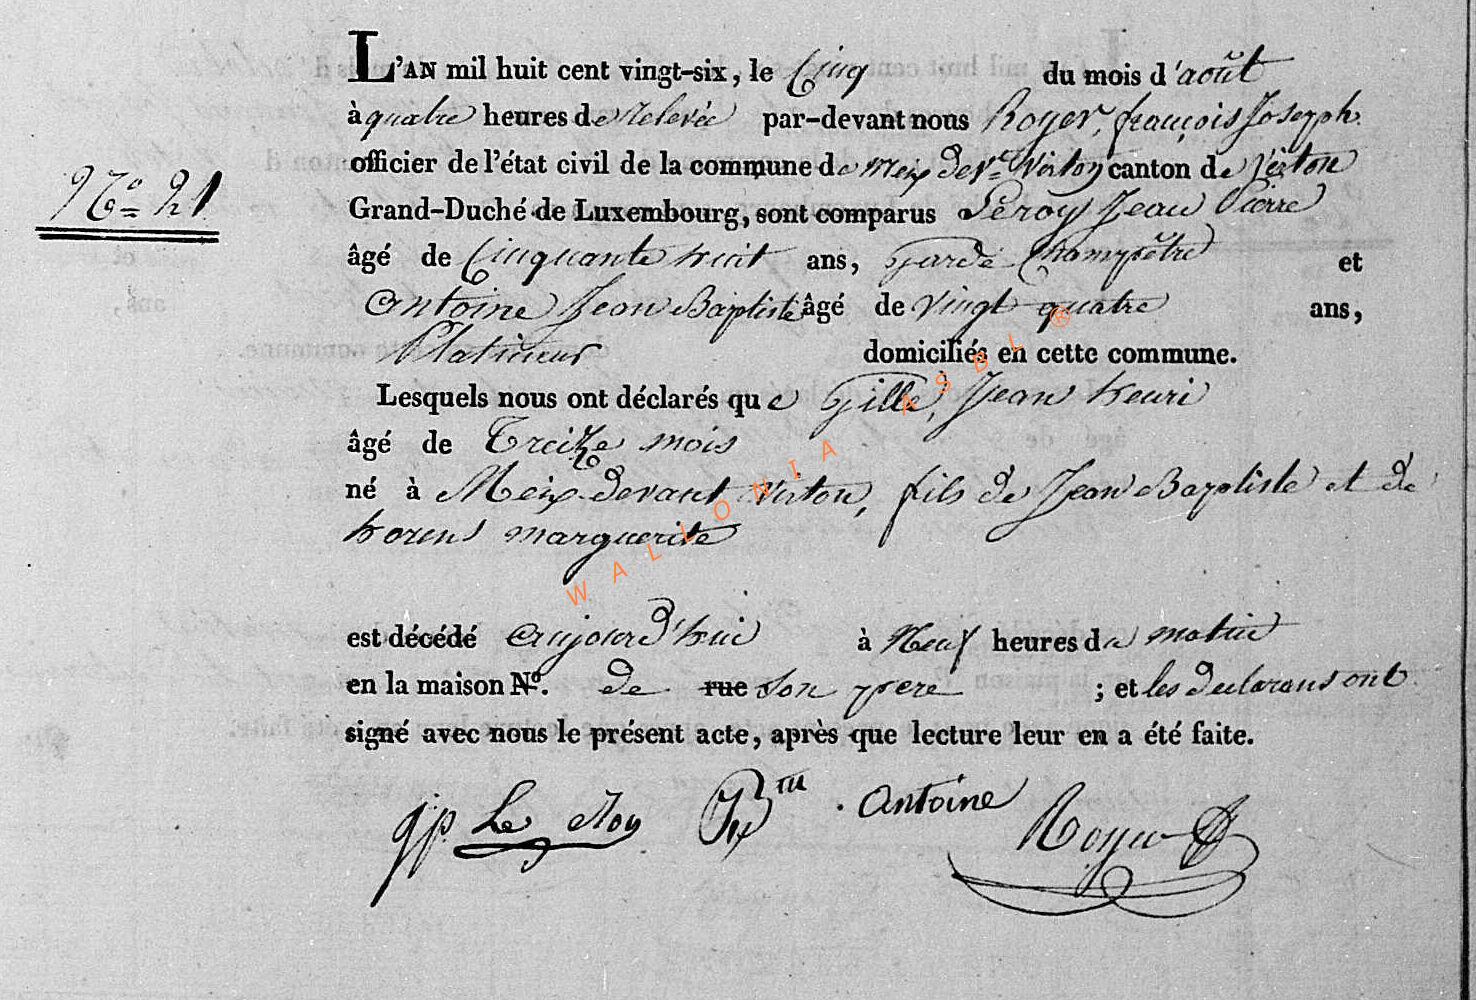 L'AN mil huit cent vingt-six, le Cinq du mois d'août
à quatre heures de relevée par-devant nous Royer, françois Joseph
officier de l'état civil de la commune de Meix devt Virton canton de Virton
N° 21
Grand-Duché de Luxembourg, sont comparus Leroy Jean Pierre
âgé de Cinquante huit ans, Garde Champêtre et
antoine Jean Baptiste âgé de vingt quatre ans,
Platineur domiciliés en cette commune.
Lesquels nous ont déclarés que Gille, Jean henri
âgé de Treize mois
né à Meix devant Virton, fils de Jean Baptiste et de
marguerite
est décédé aujourd'hui à Neuf heures du matin
en la maison N°. de rue son pere ; et les declarans ont
signé avec nous le présent acte, après que lecture leur en a été faite.
jp Le Roy JBte . antoine Royer
WALLONIA ASBL ®